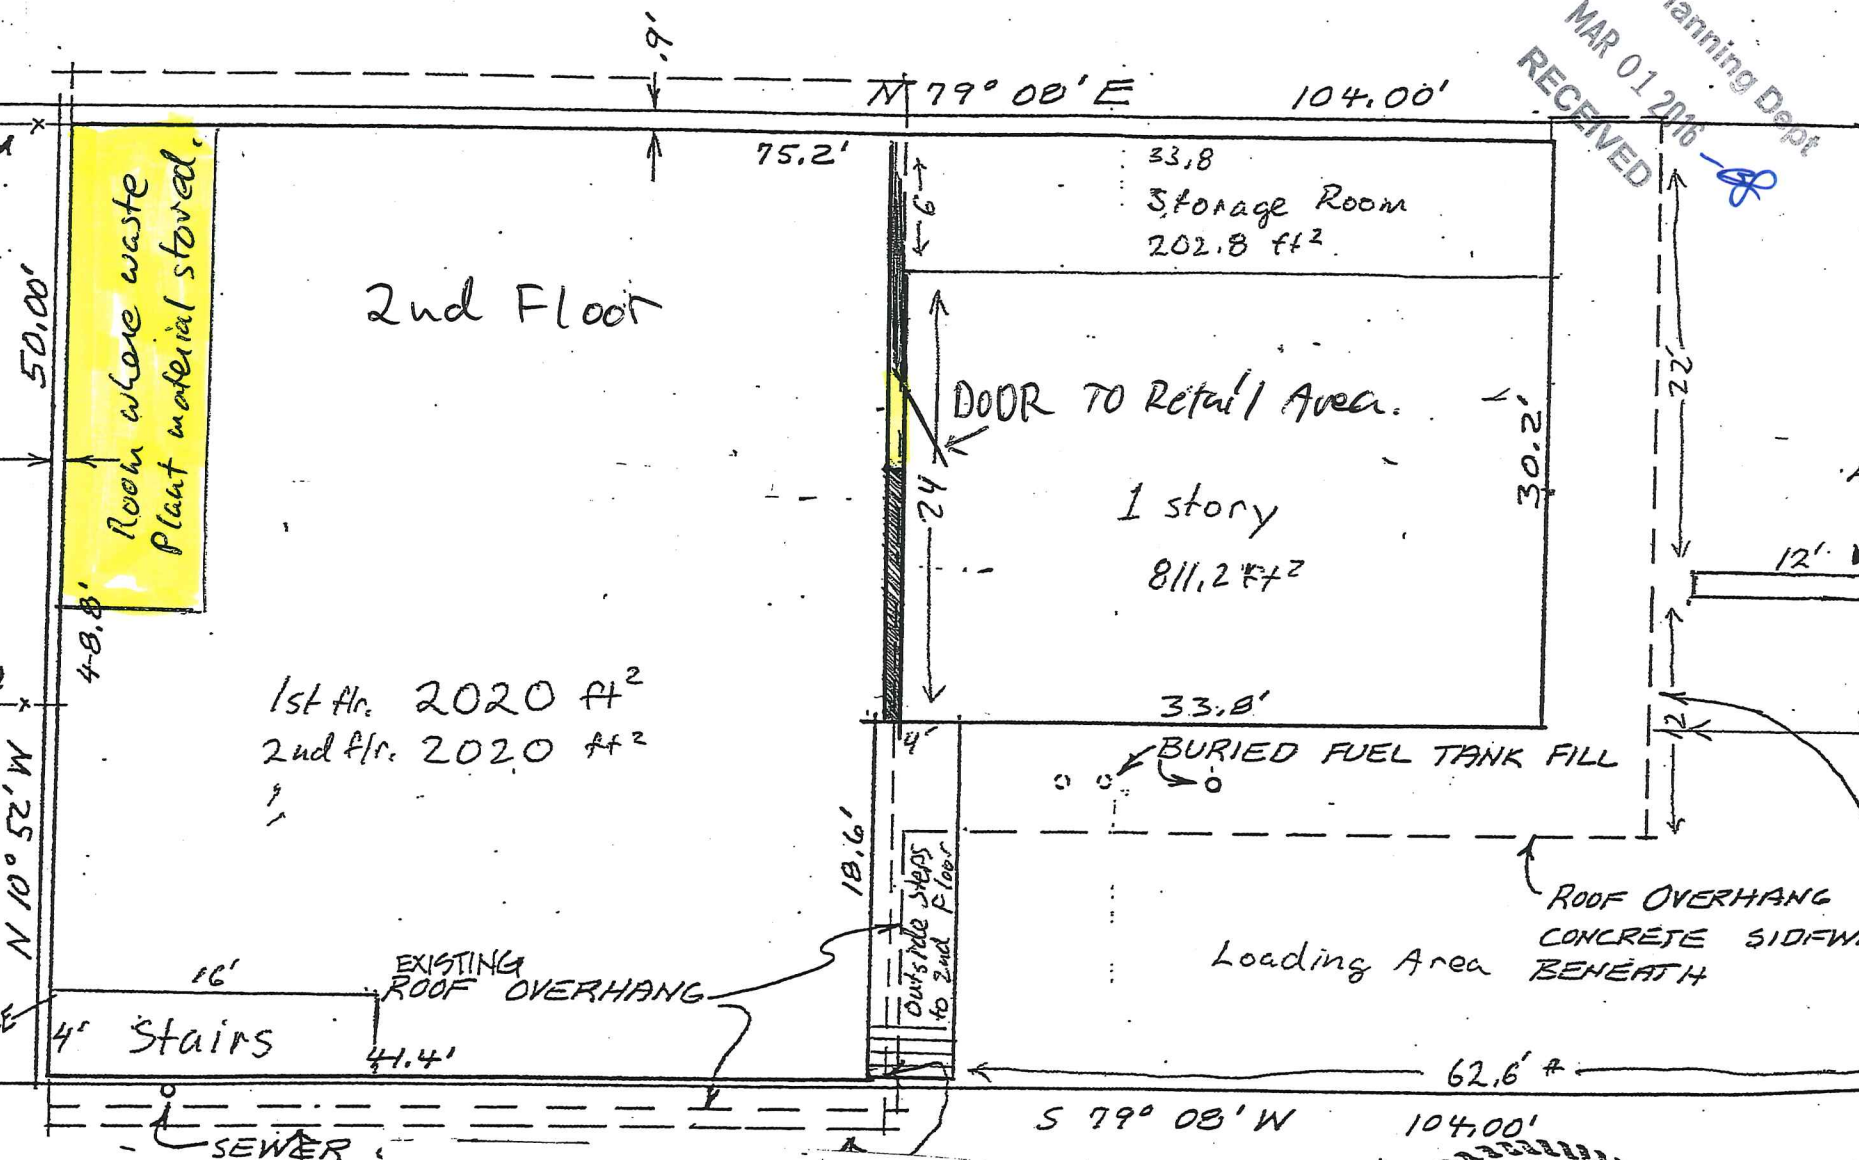 .9'
N 79° 08' E 104.00'
anning Dept
MAR 01 2016
RECEIVED
75.2'
33.8
Storage Room
202.8 ft²
6
50.00'
Room where waste
Plant material stored.
2nd Floor
DOOR TO Retail Area.
24
1 story
811.2 Ft²
30.2'
22'
12'
48.8'
1st flr. 2020 ft²
2nd flr. 2020 ft²
33.8'
4'
12
BURIED FUEL TANK FILL
N 10° 52' W
18.6'
Outside Steps
to 2nd Floor
ROOF OVERHANG
CONCRETE SIDEW
BENEATH
Loading Area
EXISTING
ROOF OVERHANG
16'
4' Stairs
41.4'
62.6' ±
S 79° 08' W 104.00'
SEWER